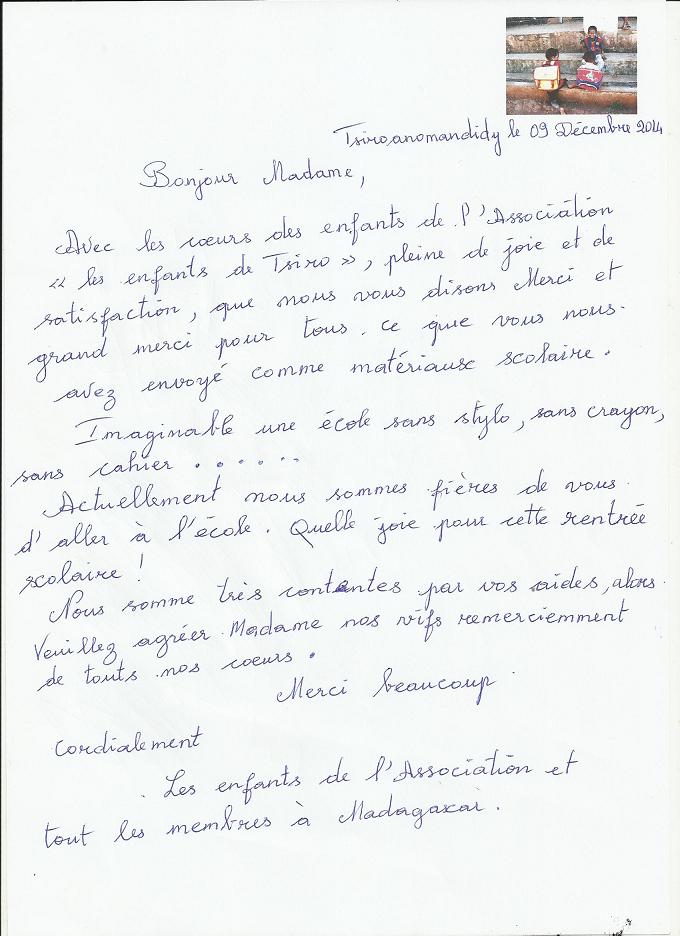 Tsiroanomandidy le 09 Décembre 2014
Bonjour Madame,
Avec les cœurs des enfants de l'Association
« les enfants de Tsiro », pleine de joie et de
satisfaction, que nous vous disons Merci et
grand merci pour tous ce que vous nous
avez envoyé comme matériaux scolaire.
Imaginable une école sans stylo, sans crayon,
sans cahier ......
Actuellement nous sommes fières de vous
d'aller à l'école. Quelle joie pour cette rentrée
scolaire !
Nous somme très contentes par vos aides, alors
Veuillez agréer Madame nos vifs remerciemment
de touts nos coeurs.
Merci beaucoup
Cordialement
Les enfants de l'Association et
tout les membres à Madagaxar.